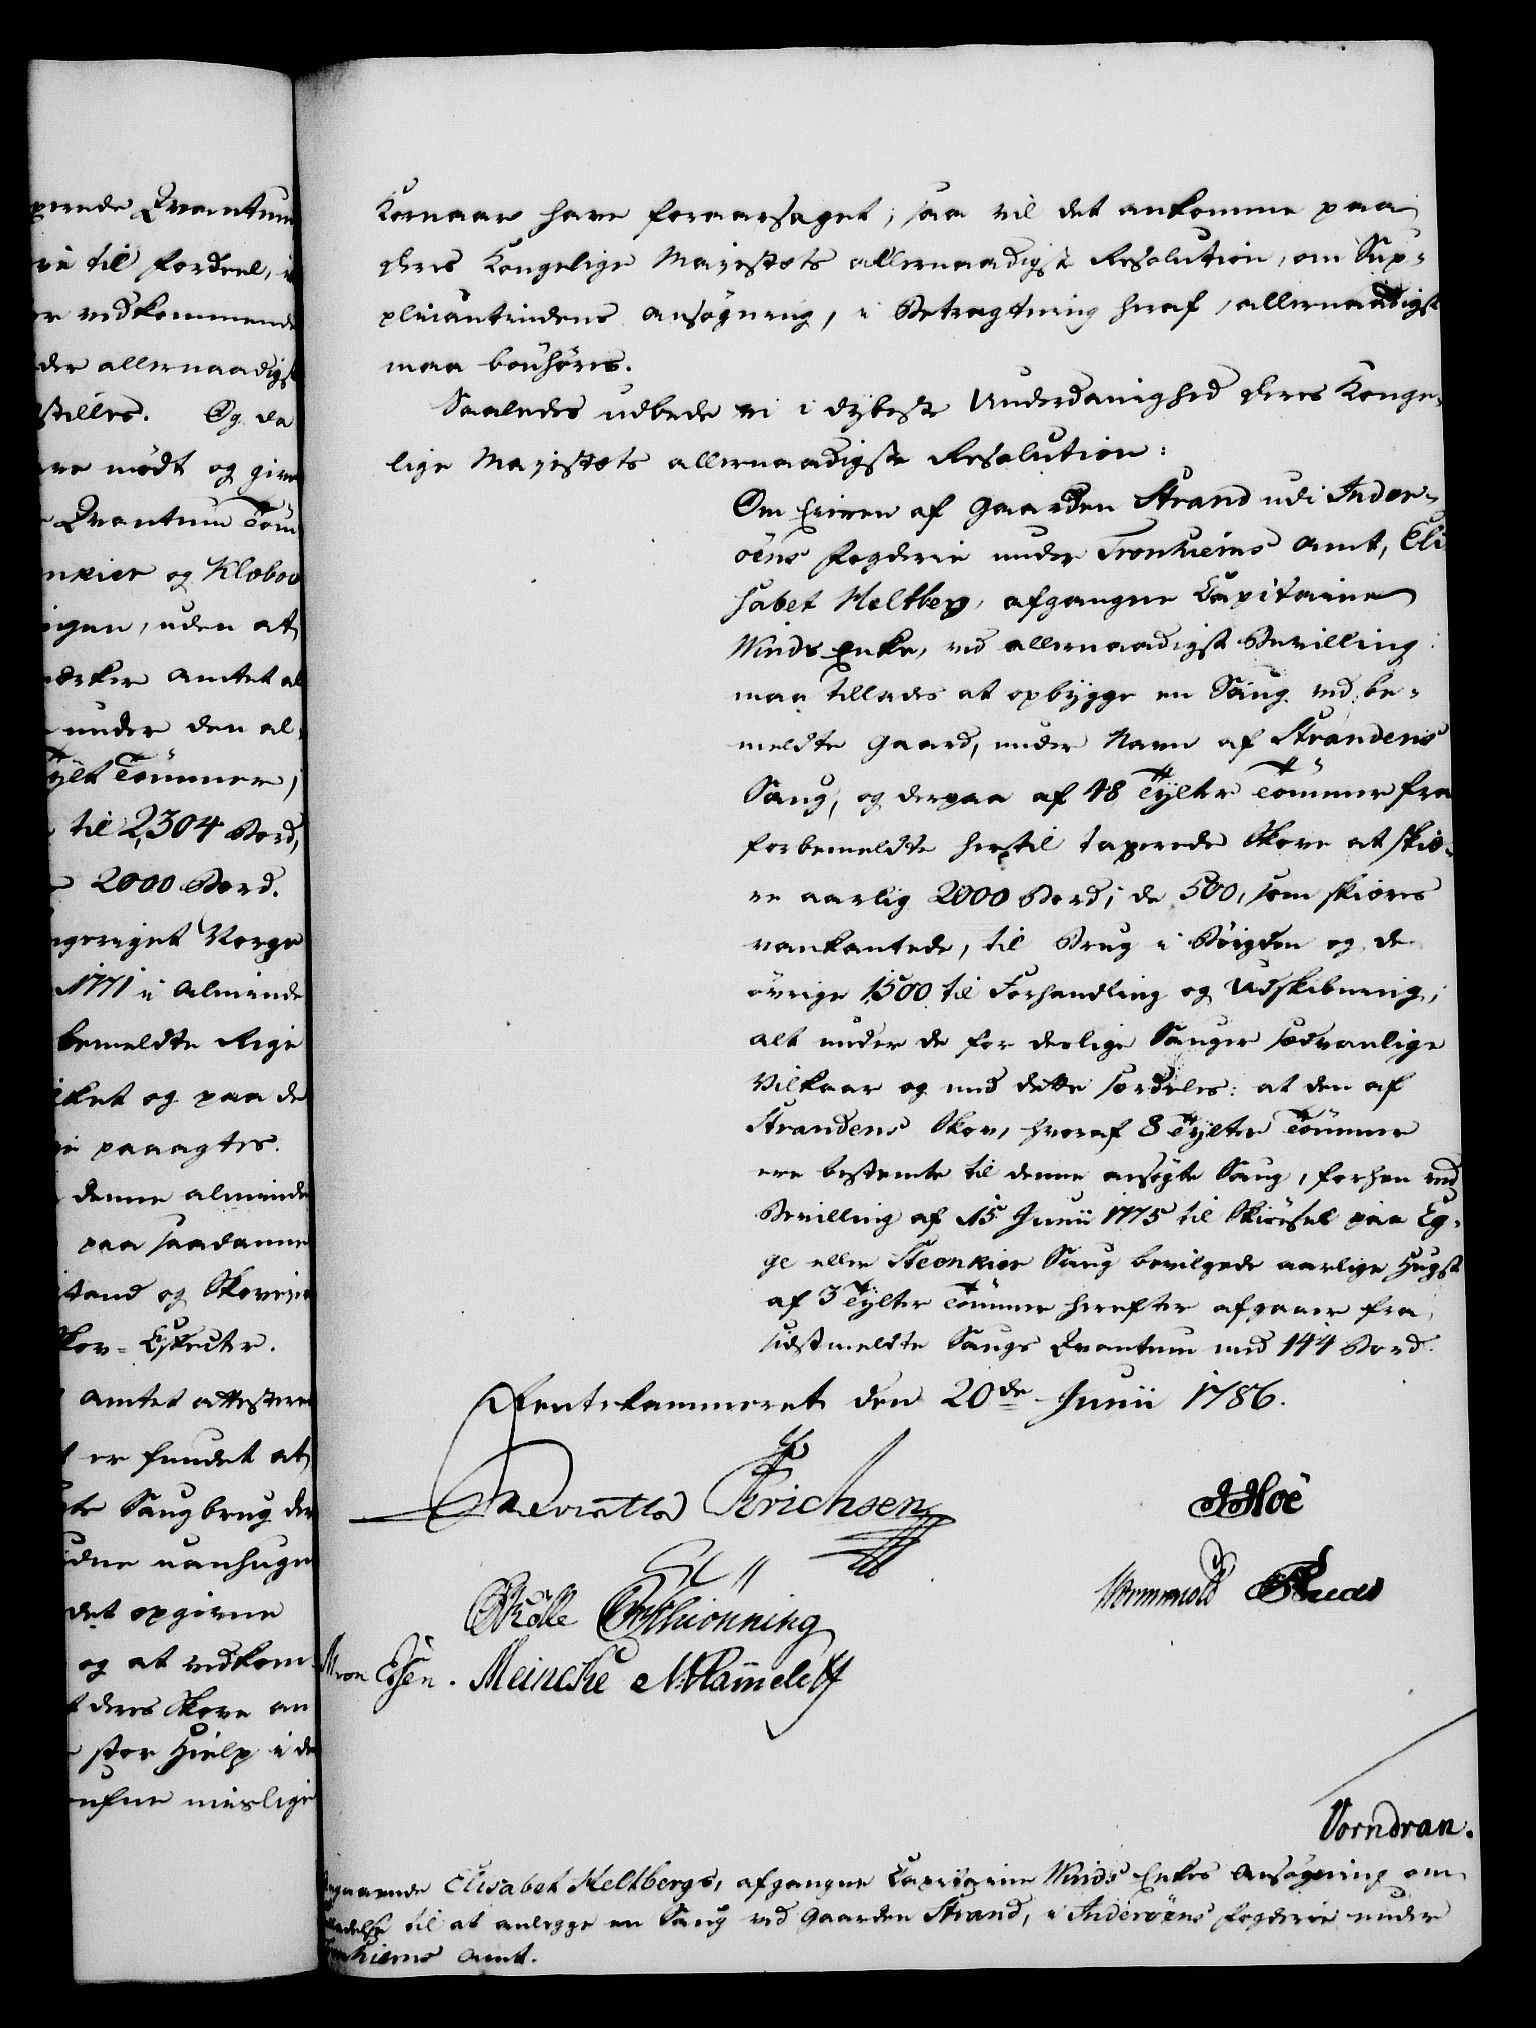 perede Qvantum
re til fordeel,
er vedkommende
der allernaadigst
stilles. Og da
are mödt og give
Qvantum Töm
nkier og Kloboe
igen, uden at
mærker Amtet al
under den al-
Tylt Tömmer,
til 2,304 Bord,
2000 Bord.
ngeriget Norge
1771 i Alminde
bemeldte Rige
ket og paa de
paaagtes.
denne alminde
paa saadanne
stand og Skovens
Skov-Effecter.
Amtet attesteret
er fundet at
te Saugbrug der
dne uanhugne
det opgivne
og at vedkom-
deres Skove an
stor Hielp i de
mislige
Kornaar have foraarsaget; saa vil det ankomme paa
Deres Kongelige Majestæts allernaadigste Resolution, om Sup-
plicantindens Ansøgning, i Betragtning heraf, allernaadigst
maa bönhöres.
Saaledes udbede vi i dybeste Underdanighed Deres Konge-
lige Majestæts allernaadigste Resolution:
Om Eieren af Gaarden Strand udi Inder-
öens Fogderie under Tronhiems Amt, Eli
sabet Heltberg, afgangne Capitaine
Winds Enke, ved allernaadigst Bevilling
maa tillades at opbygge en Saug ved be-
meldte Gaard, under Navn af Strandens
Saug, og derpaa af 48 Tylter Tömmer fra
forbemeldte hertil taxerede Skove at skiæ-
re aarlig 2000 Bord; de 500, som skiæres
vankantede, til Brug i Böigden og de
övrige 1500 til Forhandling og Udskibning;
alt under de for deslige Sauger sædvanlige
Vilkaar og med dette særdeles: at den af
Strandens Skov, hvoraf 8 Tylter Tömmer
ere bestemte til denne ansögte Saug, forhen ved
Bevilling af 15 Junii 1775 til Skiörsel paa Eg-
ge eller Steenkier Saug bevilgede aarlige Hugst
af 3 Tylter Tömmer herefter afgaaer fra
sidstmeldte Saugs Qvantum med 144 Bord.
Rentekammeret den 20de Junii 1786.
Erichsen
Hoë
Skölle Schiönning
Wormskiold
Essen. Meincke Rammeleff
Vorndran.
Angaaende Elisabet Heltbergs, afgangne Capitaine Winds Enkes Ansögning om
Tilladelse til at anlegge en Saug ved Gaarden Strand, i Inderöens Fogderie under
Tronhiems Amt.